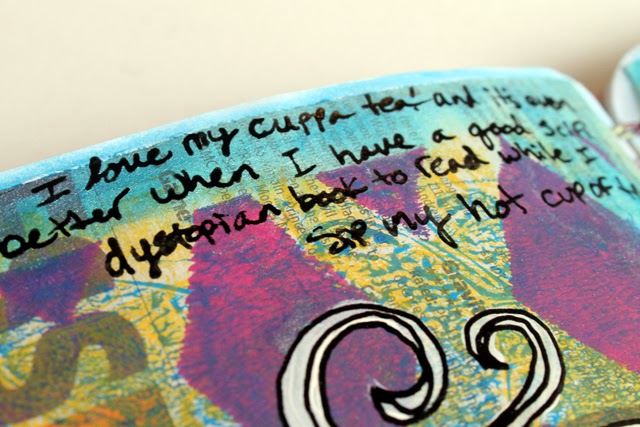 I love my cuppa tea and it's even
better when I have a good scifi
dystopian book to read while I
sip my hot cup of